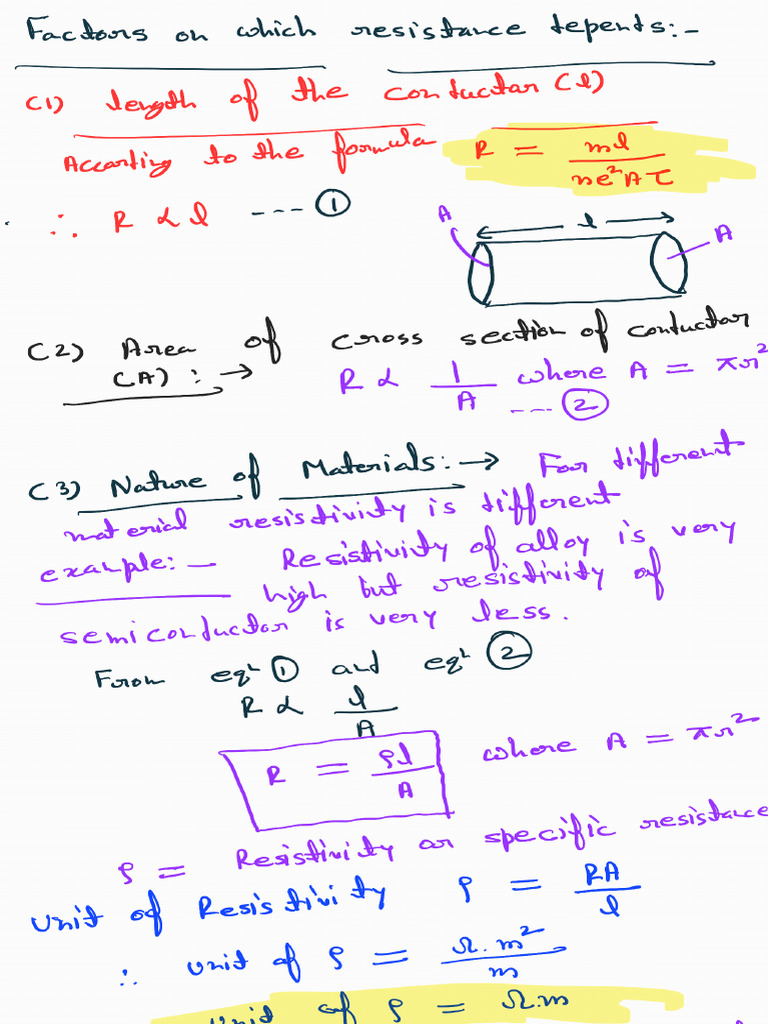 Factors on which resistance depends:-
(1) length of the conductor (l)
According to the formula R = ml / ne²Aτ
∴ R ∝ l ---- ①
A l A
(2) Area of cross section of conductor
(A) : → R ∝ 1/A where A = πr²
---- ②
(3) Nature of Materials:→ For different
material resistivity is different
example:- Resistivity of alloy is very
high but resistivity of
semiconductor is very less.
From eqⁿ ① and eqⁿ ②
R ∝ l/A
R = ρl/A where A = πr²
ρ = Resistivity or specific resistance
Unit of Resistivity ρ = RA/l
∴ unit of ρ = Ω.m²/m
Unit of ρ = Ω.m